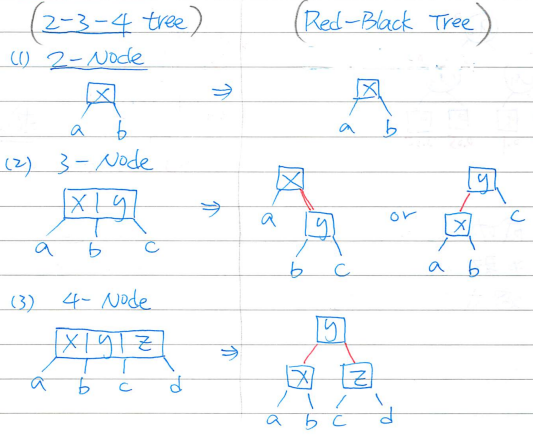 (2-3-4 tree) (Red-Black Tree)
(1) 2-Node
x ⇒ x
a b a b
(2) 3-Node
x | y ⇒ x or y
a b c a y x c
b c a b
(3) 4-Node
x | y | z ⇒ y
a b c d x z
a b c d